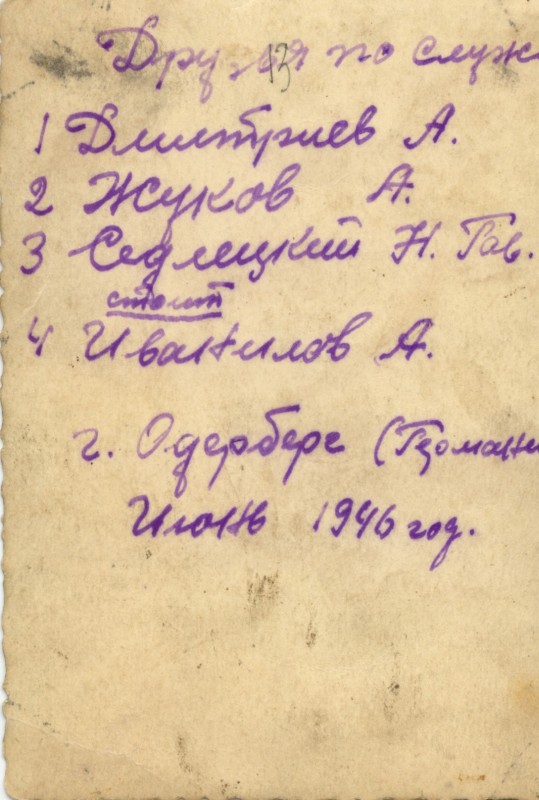 Друзья по служ
13
1 Дмитриев А.
2 Жуков А.
3 Седлецкий Н. Гав.
стоит
4 Иванилов А.
г. Одерберг (Германи
Июнь 1946 год.